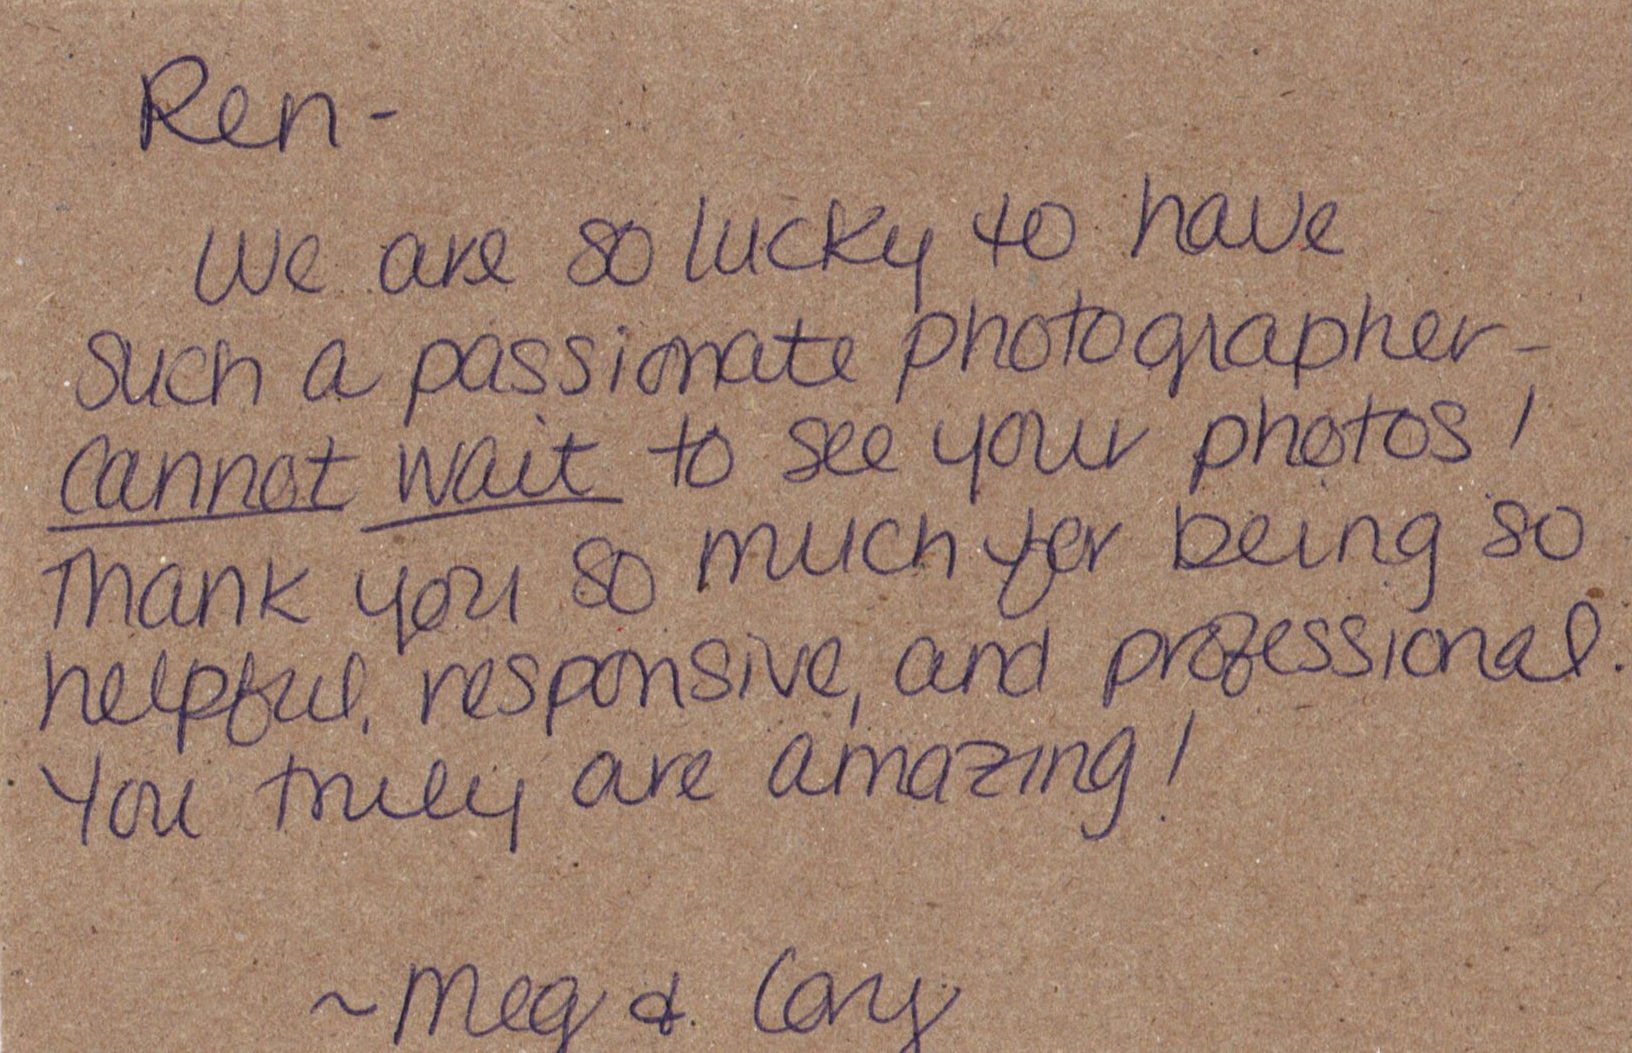 Ren-
We are so lucky to have
such a passionate photographer-
cannot wait to see your photos!
Thank you so much for being so
helpful, responsive, and professional.
You truly are amazing!
~Meg & Cory